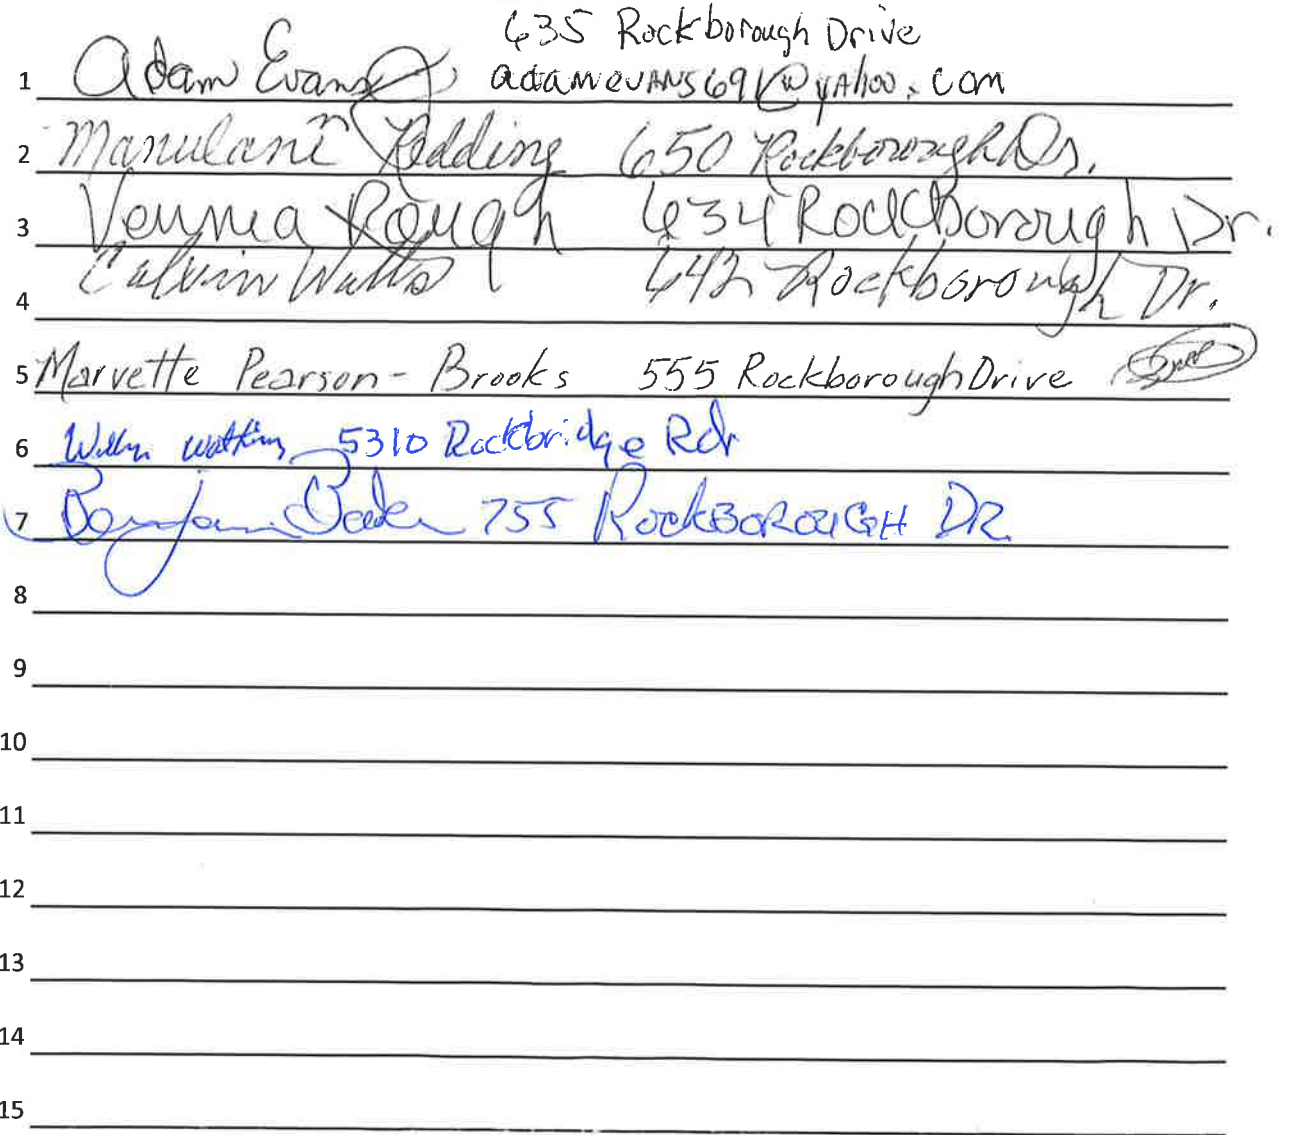 635 Rockborough Drive
1 Adam Evans adamevans691@yahoo.com
2 Manulani Redding 650 Rockborough Dr.
3 Vennia Rough 634 Rockborough Dr.
4 Calvin Watts 642 Rockborough Dr.
5 Marvette Pearson-Brooks 555 Rockborough Drive
6 Watkins 5310 Rockbridge Rd
7 Benjamin 755 ROCKBOROUGH DR
8
9
10
11
12
13
14
15